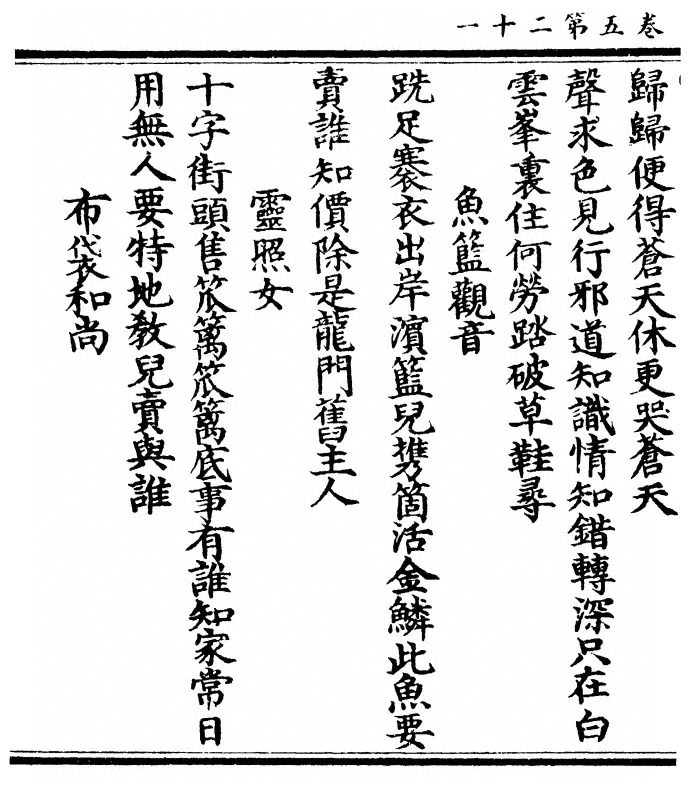 卷五第二十一
歸歸便得蒼天休更哭蒼天
聲求色見行邪道知識情知錯轉深只在白
雲峯裏住何勞踏破草鞋尋
魚籃觀音
跣足褰衣出岸濵籃兒携箇活金鱗此魚要
賣誰知價除是龍門舊主人
靈照女
十字街頭售笊篱笊篱底事有誰知家常日
用無人要特地教兒賣與誰
布袋和尚